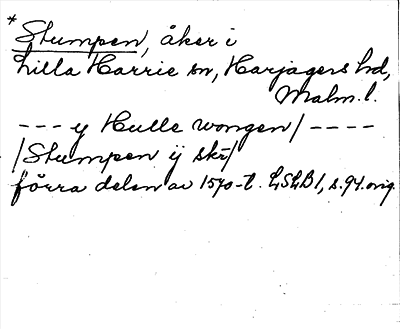 * Stumpen, åker i
Lilla Harrie sn, Harjagers hd,
Malm. l.
--- y Hulle wongen/ ----
/Stumpen ij skr/
förra delen av 1570-t. LSLB1, s. 94. orig.